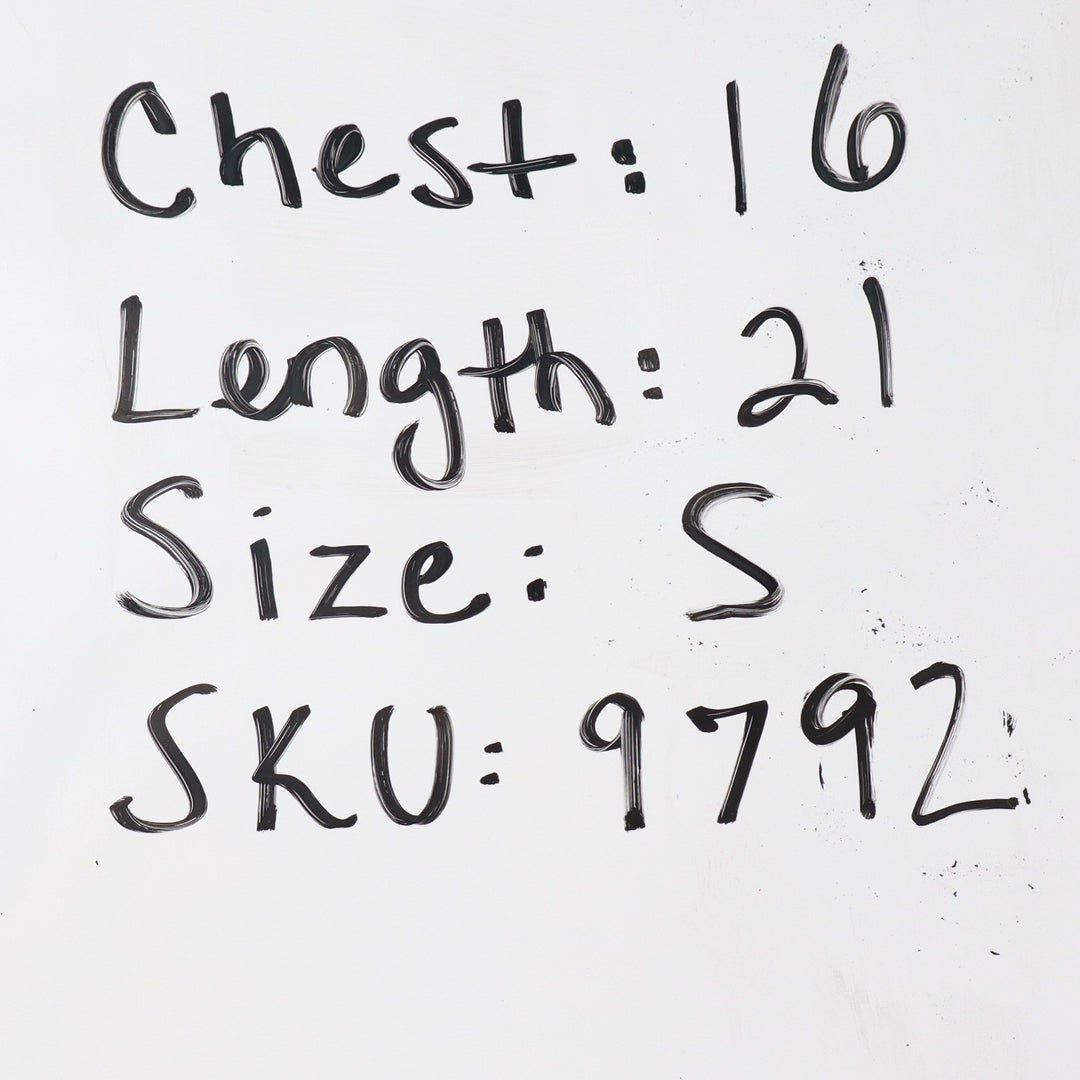 Chest: 16
Length: 21
Size: S
SKU: 9792